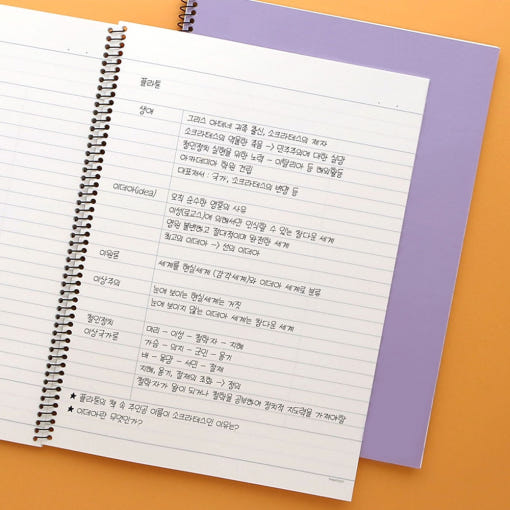 플라톤
생애
그리스 아테네 귀족 출신, 소크라테스의 제자
소크라테스의 억울한 죽음 -> 민주주의에 대한 실망
철인정치 실현을 위한 노력 - 이탈리아 등 해외활동
아카데미아 학원 건립
대표저서 : 국가, 소크라테스의 변명 등
이데아(idea)
오직 순수한 영혼의 사유
이성(로고스)에 의해서만 인식할 수 있는 참다운 세계
영원 불변하고 절대적이며 완전한 세계
최고의 이데아 -> 선의 이데아
이원론
세계를 현실세계 (감각세계)와 이데아 세계로 분류
이상주의
눈에 보이는 현실세계는 거짓
눈에 보이지 않는 이데아 세계는 참다운 세계
철인정치
이상국가론
머리 - 이성 - 철학자 - 지혜
가슴 - 의지 - 군인 - 용기
배 - 욕망 - 서민 - 절제
지혜, 용기, 절제의 조화 -> 정의
철학자가 왕이 되거나 철학을 공부하여 정치적 지도력을 가져야함
★ 플라톤의 책 속 주인공 이름이 소크라테스인 이유는?
★ 이데아란 무엇인가?